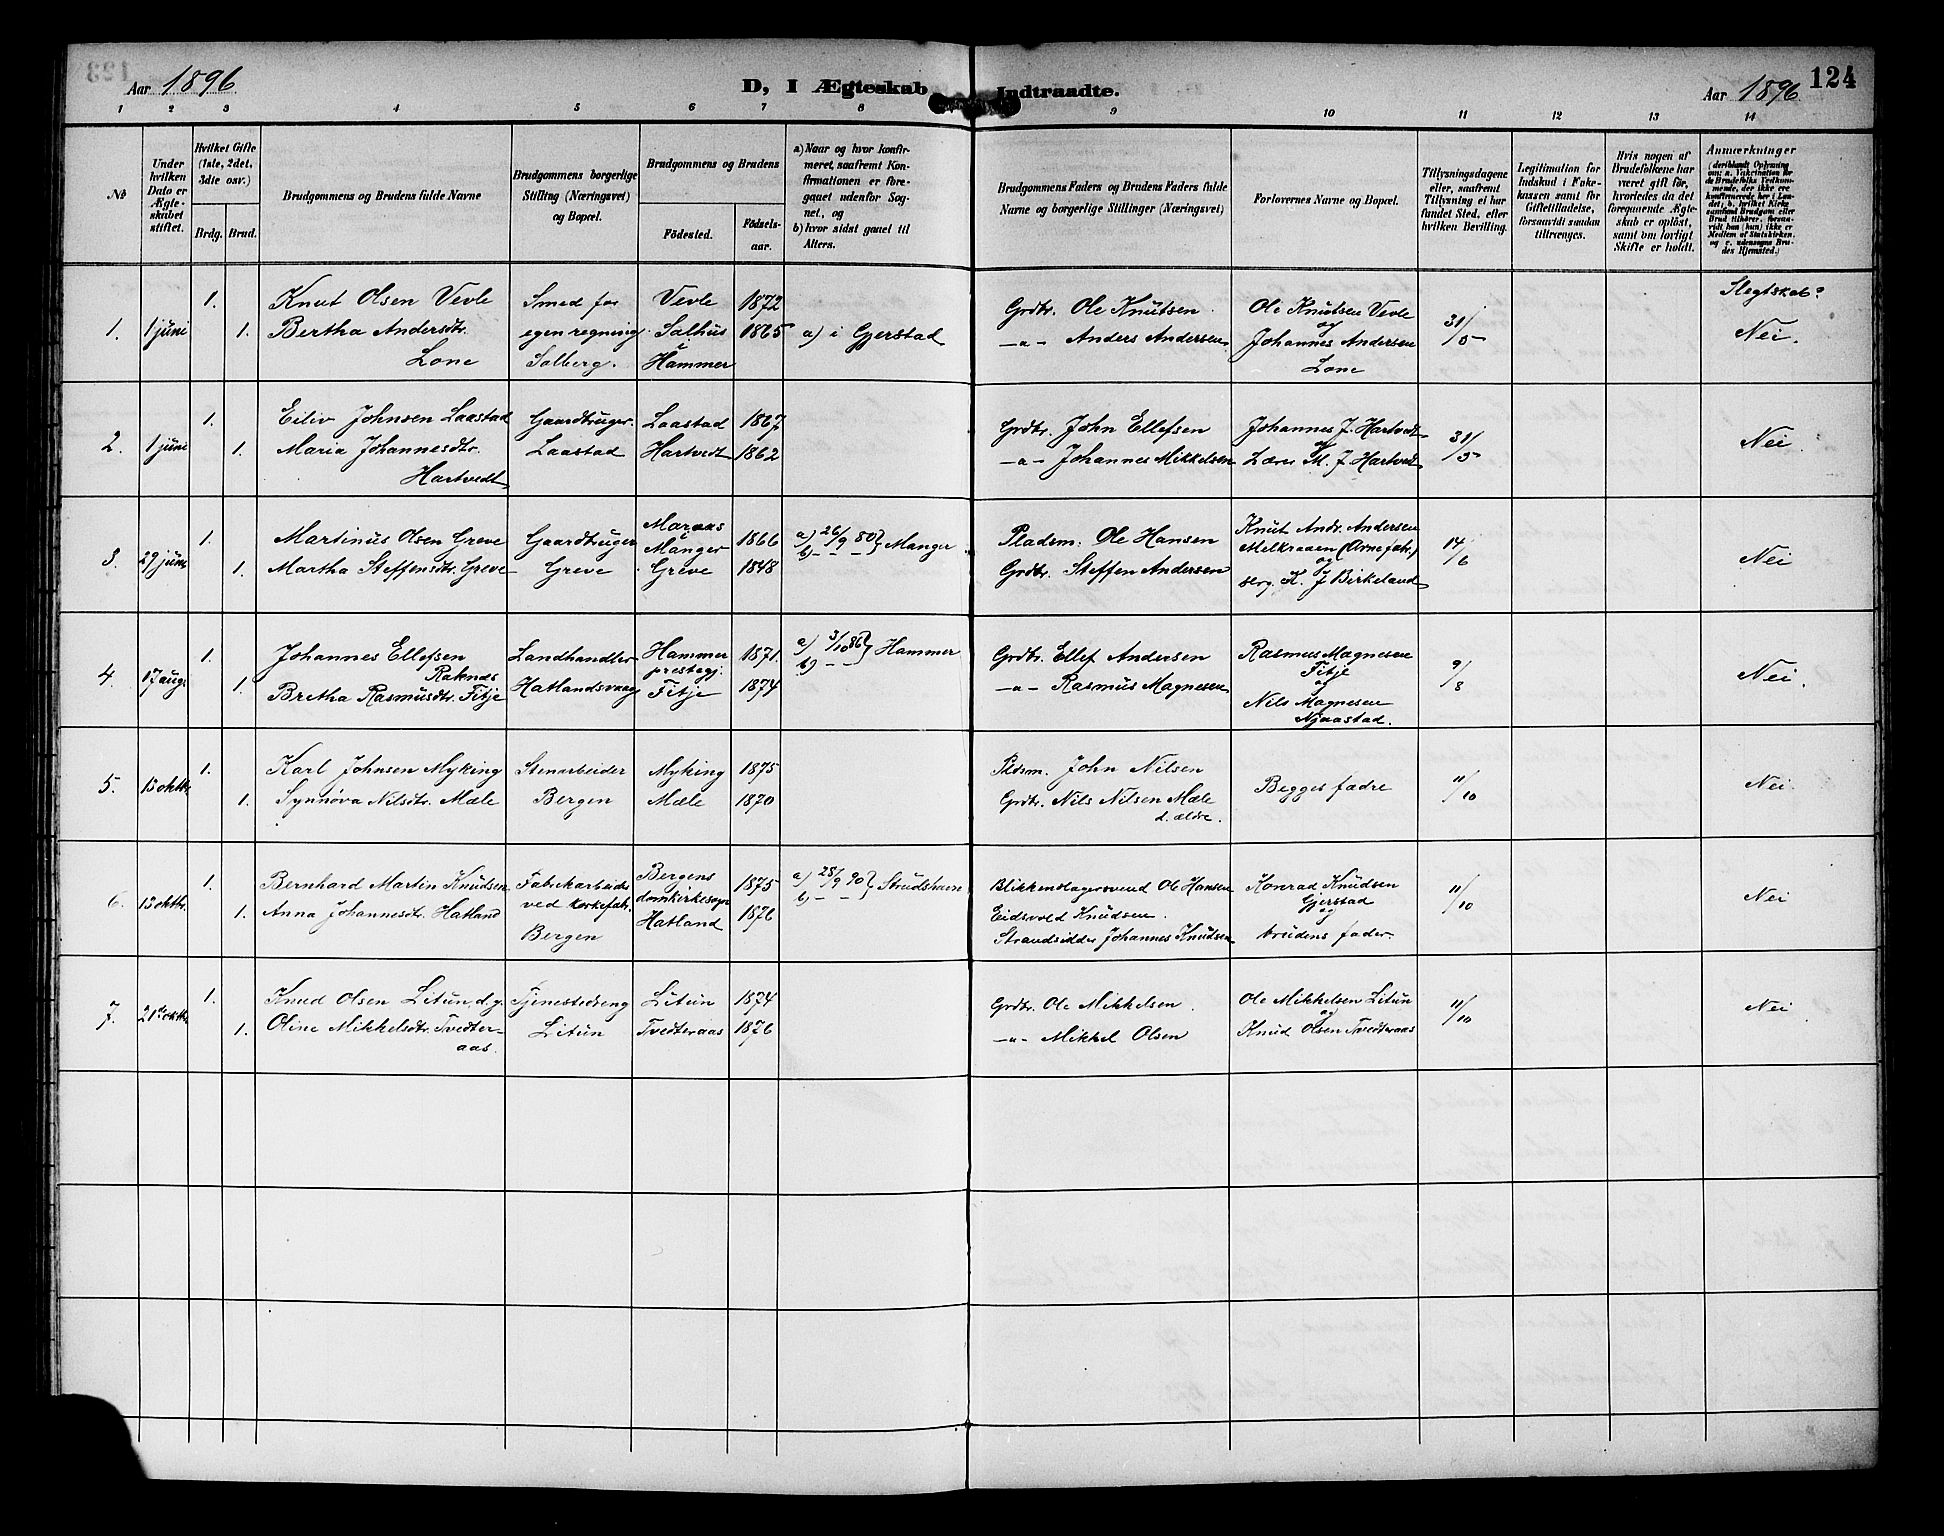 Aar 1896
D, I Ægteskab Indtraadte.
Aar 1896
124
1 2 3 4 5 6 7 8 9 10 11 12 13 14
No
Under hvilken Dato er Ægteskabet stiftet.
Hvilket Gifte (1ste, 2det, 3die osv.)
Brdg. Brud.
Brudgommens og Brudens fulde Navne
Brudgommens borgerlige Stilling (Næringsvei) og Bopæl.
Brudgommens og Brudens
Födested.
Födselsaar.
a) Naar og hvor konfirmeret, saafremt Konfirmationen er foregaaet udenfor Sognet, og
b) hvor sidst gaaet til Alters.
Brudgommens Faders og Brudens Faders fulde Navne og borgerlige Stillinger (Næringsvei)
Forlovernes Navne og Bopæl.
Tillysningsdagene eller, saafremt Tillysning ei har fundet Sted, efter hvilken Bevilling.
Legitimation for Indskud i Enkekassen samt for Giftetilladelse, forsaavidt saadan tiltrænges.
Hvis nogen af Brudefolkene har været gift før, hvorledes da det foregaaende Ægteskab er opløst, samt om lovligt Skifte er holdt.
Anmærkninger
(deriblandt Oplysning om: a. Vakcination for de Brudefolks Vedkommende, der ikke ere konfirmerede her i Landet; b. hvilket Kirkesamfund Brudgom eller Brud tilhører, forsaavidt han (hun) ikke er Medlem af Statskirken, og c. udensogns Brudes Hjemsted.)
1. 1 juni 1. Knut Olsen Vevle Smed for Vevle 1872 Grdbr. Ole Knutsen Ole Knutsen Vevle 31/5 Slegtskab?
1. Bertha Andersdtr. egen regning Salhus 1865 a) i Gjerstad -"- Anders Andersen og Johannes Andersen Nei.
Lone Salberg. Hammer Lone
2. 1 juni 1. Eiliv Johnsen Laastad Gaardbruger Laastad 1867 Grdbr. John Ellefsen Johannes J. Hartvedt 31/5 Nei
1. Maria Johannesdtr. Laastad Hartvedt 1862 -"- Johannes Mikkelsen og Lærer M. J. Hartvedt
Hartvedt
3. 29 juni 1. Martinus Olsen Greve Gaardbruger Maraas Manger 1866 a) 26/9 80 } Manger Pladsm. Ole Hansen Knut Andr. Andersen 14/6 Nei
Melkraaen (Arnefabr.)
og
1. Martha Steffensdtr. Greve Greve Greve 1848 b) - - Grdbr. Steffen Andersen serg. K. J. Birkeland
4. 17 aug. 1. Johannes Ellefsen Landhandler Hammer 1871. a) 3/10 86 } Hammer Grdbr. Ellef Andersen Rasmus Magnesen 9/8 Nei.
Raknæs prestegj. b) - - Fitje
1. Bretha Rasmusdtr. Fitje Hatlandsvaag Fitje 1874 -"- Rasmus Magnesen og Nils Magnesen
Njaastad.
5. 15 oktbr. 1. Karl Johnsen Myking Stenarbeider Myking 1875 Pladsm. John Nilsen Begges fædre 11/10 Nei.
1. Synnøva Nilsdtr. Mæle Bergen Mæle 1870 Grdbr. Nils Nilsen Mæle
d. ældre.
6. 15 oktbr. 1. Bernhard Martin Knudsen Fabrikarbeider Bergens 1875 a) 28/9 90 } Strudshavn Blikkenslagersvend Ole Hansen Konrad Knudsen 11/10 Nei
ved korkefabr. domkirkesogn b) - - Eidsvold Knudsen. Gjerstad
1. Anna Johannesdtr. Hatland Bergen Hatland 1876 Strandsidder Johannes Knudsen og brudens fader.
7. 21de oktbr. 1. Knud Olsen Litun, d.y. Tjenestedreng Litun 1874 Grdbr. Ole Mikkelsen Ole Mikkelsen Litun 11/10 Nei
1. Oline Mikkelsdtr. Tvedteraas. Litun Tvedteraas 1876 -"- Mikkel Olsen og Knud Olsen Tvedteraas